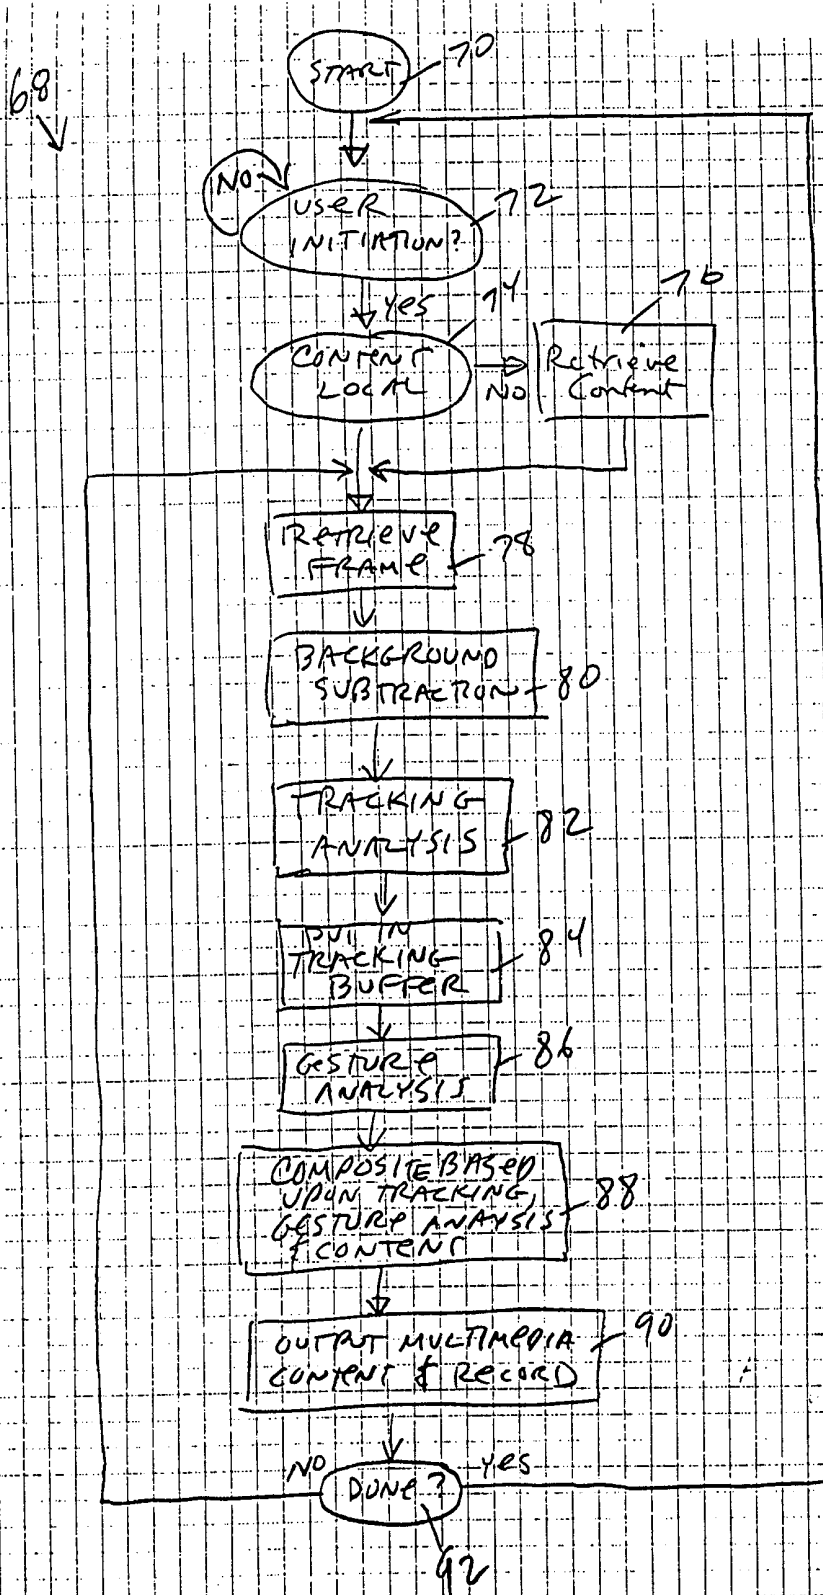 70
START
68
NO
USER
INITIATION?
72
Yes
74
76
CONTENT
LOCAL
NO
Retrieve
Content
Retrieve
FRAME
78
BACKGROUND
SUBTRACTION
80
TRACKING
ANALYSIS
82
PUT IN
TRACKING
BUFFER
84
GESTURE
ANALYSIS
86
COMPOSITE BASED
UPON TRACKING,
GESTURE ANAYSIS
& CONTENT
88
OUTPUT MULTIMEDIA
CONTENT & RECORD
90
NO
DONE?
Yes
92